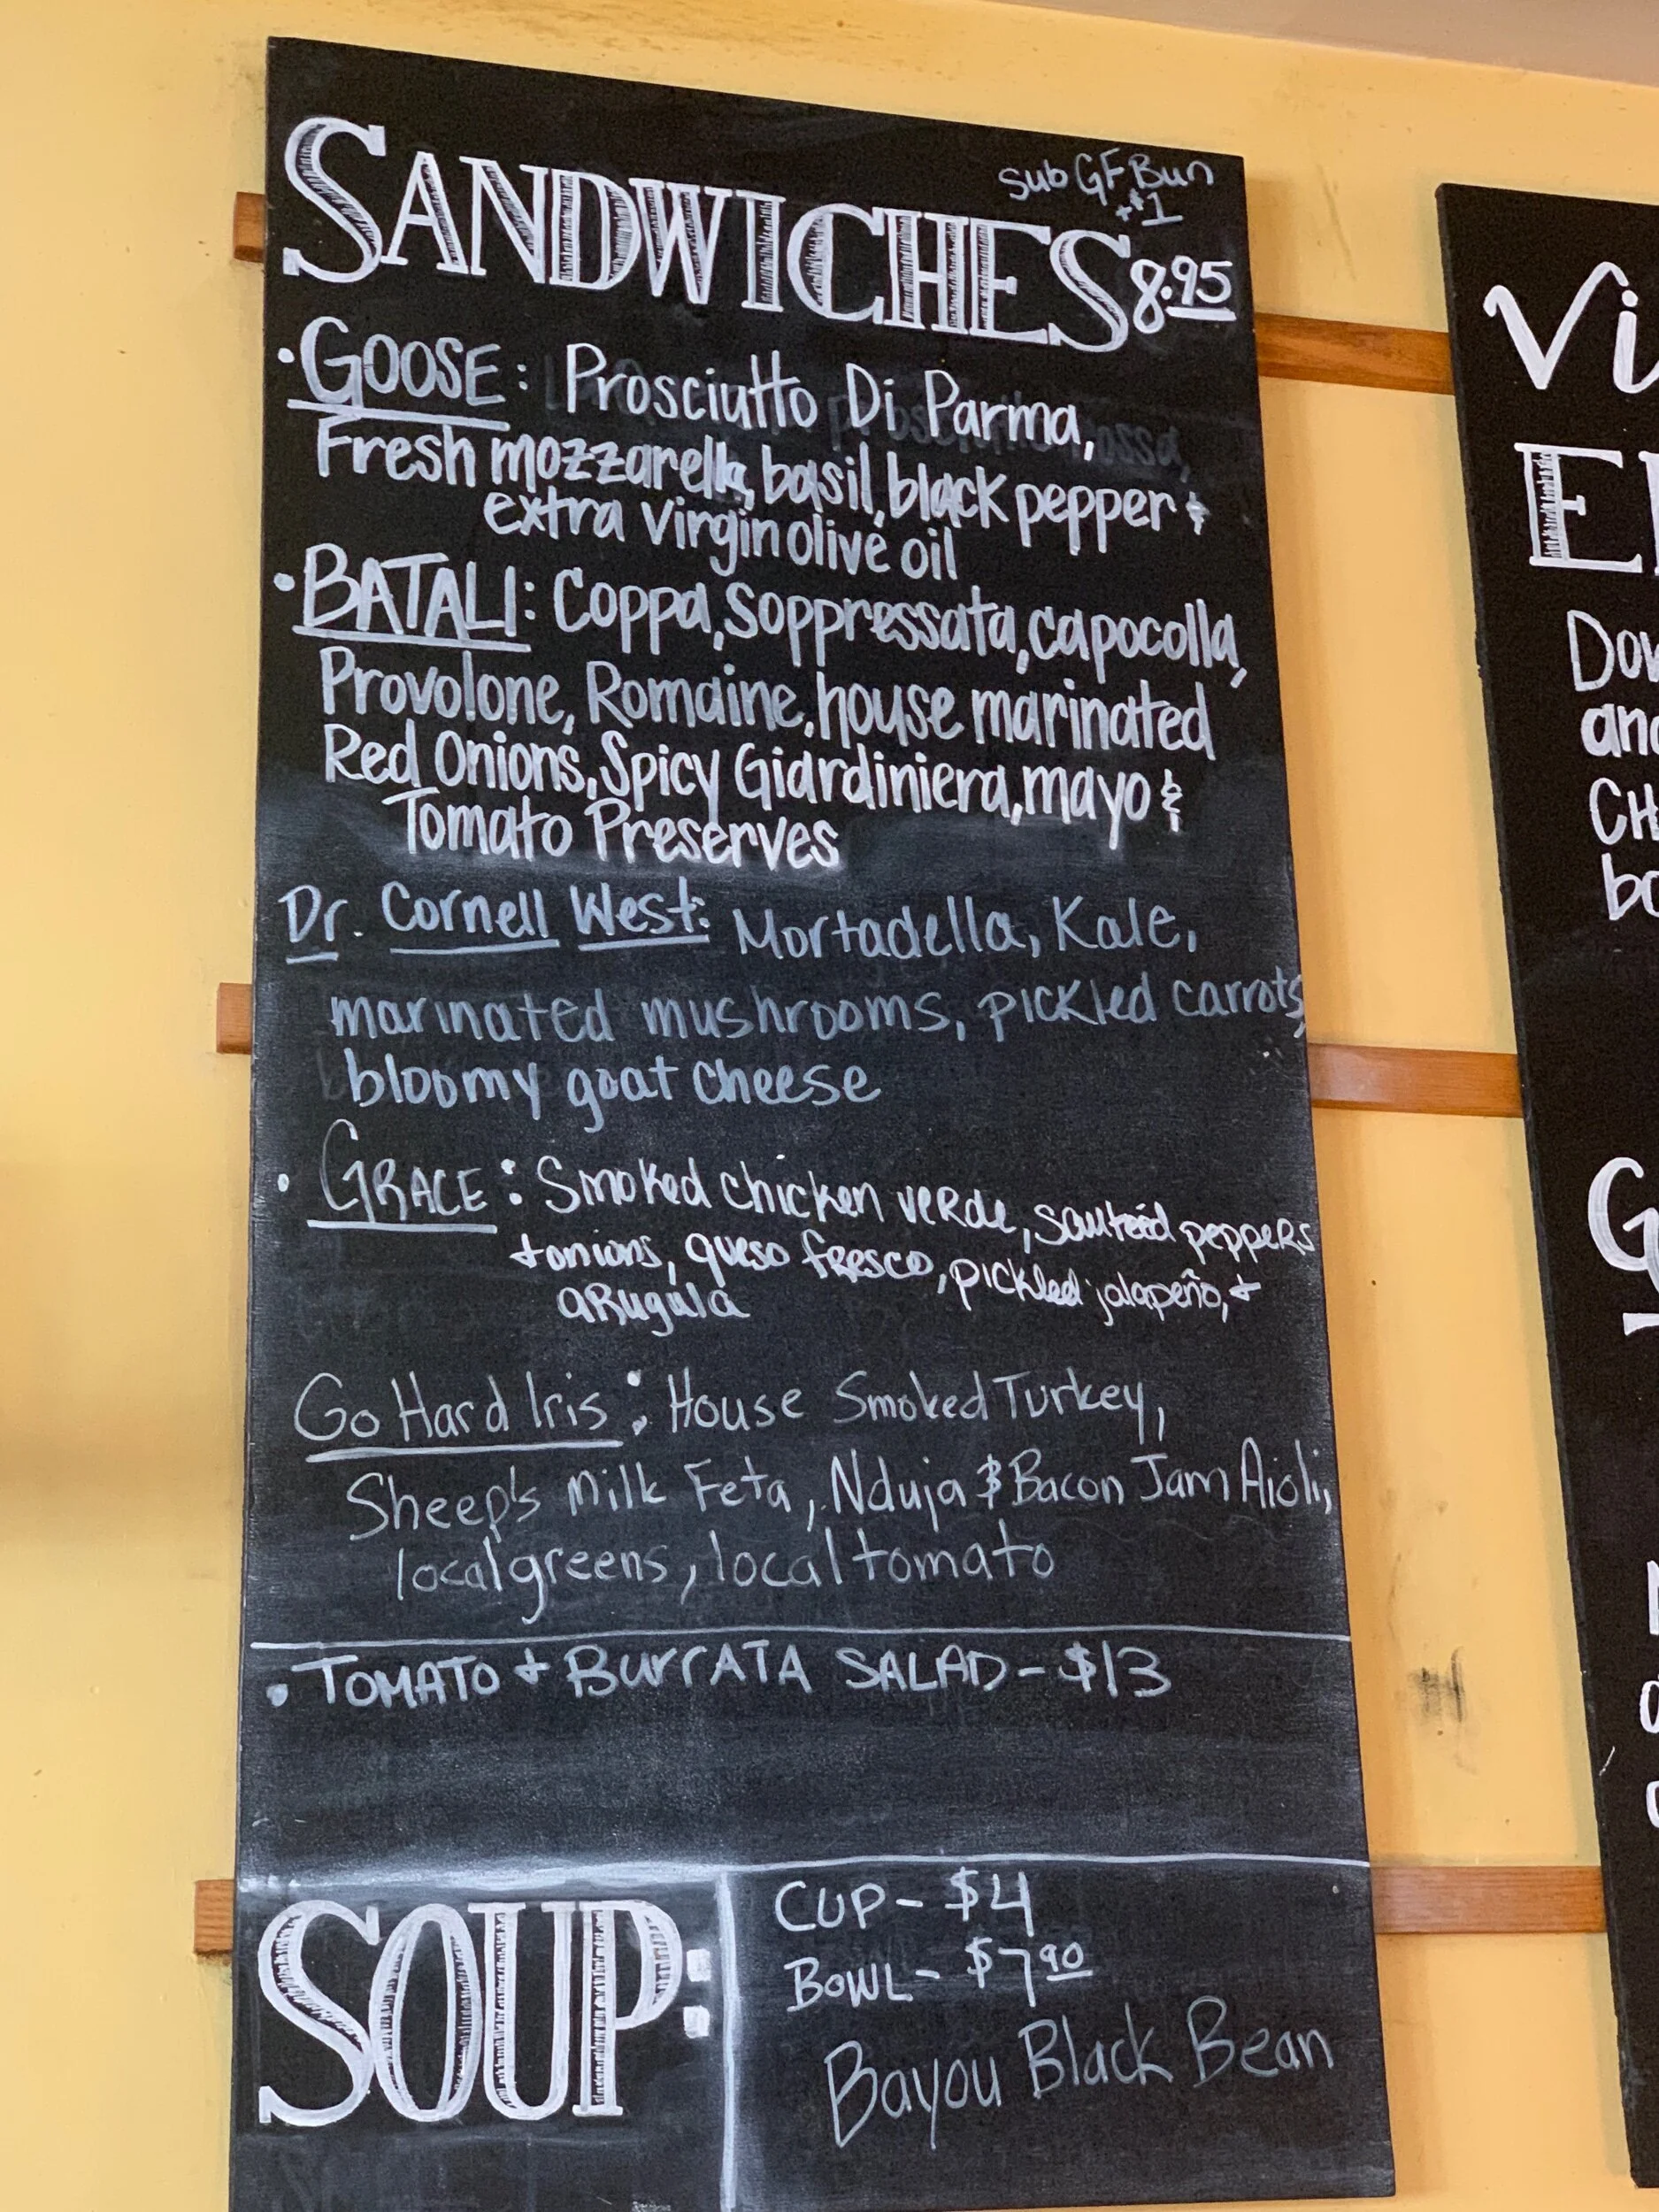 sub GF Bun
+$1
SANDWICHES 8.95
• GOOSE: Prosciutto Di Parma,
Fresh mozzarella, basil, black pepper &
extra virgin olive oil
• BATALI: Coppa, Soppressata, capocolla,
Provolone, Romaine, house marinated
Red Onions, Spicy Giardiniera, mayo &
Tomato Preserves
Dr. Cornell West: Mortadella, Kale,
marinated mushrooms, pickled carrots,
bloomy goat cheese
• GRACE: Smoked chicken verde, sauteéd peppers
+ onions, queso fresco, pickled jalapeño, +
arugula
Go Hard Iris: House Smoked Turkey,
Sheep's Milk Feta, Nduja & Bacon Jam Aioli,
local greens, local tomato
• TOMATO + BURRATA SALAD - $13
SOUP:
CUP - $4
BOWL - $7.90
Bayou Black Bean
Vi